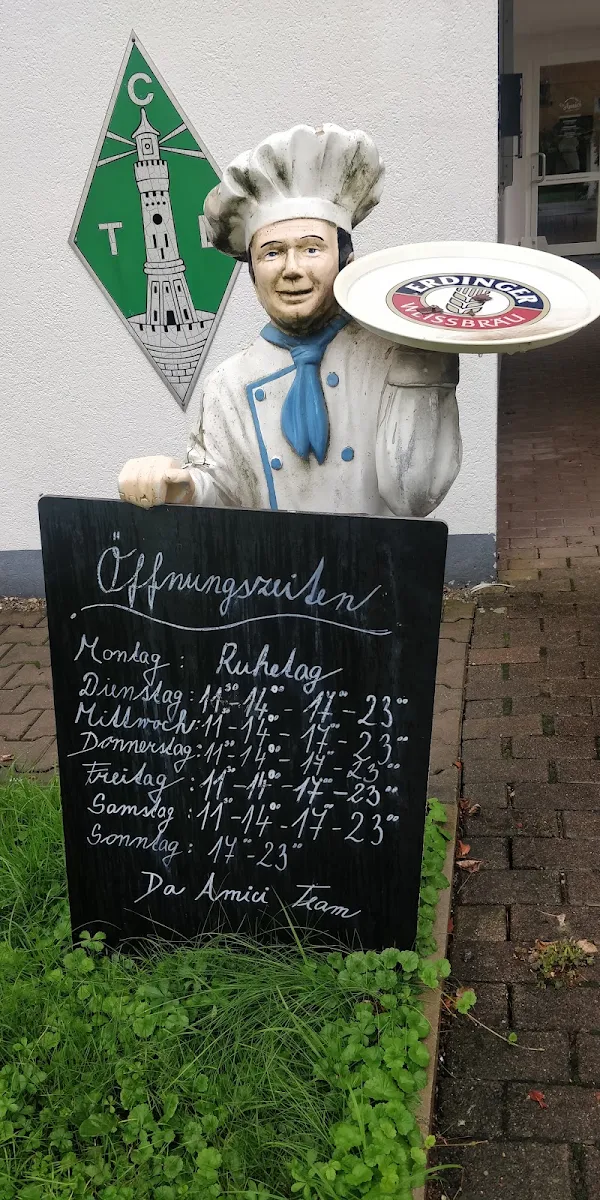 C
T L
ERDINGER
WEISSBRÄU
Öffnungszeiten
Montag: Ruhetag
Dienstag: 11³⁰-14⁰⁰-17⁰⁰-23⁰⁰
Mittwoch: 11³⁰-14⁰⁰-17⁰⁰-23⁰⁰
Donnerstag: 11³⁰-14⁰⁰-17⁰⁰-23⁰⁰
Freitag: 11³⁰-14⁰⁰-17⁰⁰-23⁰⁰
Samstag: 11³⁰-14⁰⁰-17⁰⁰-23⁰⁰
Sonntag: 17⁰⁰-23⁰⁰
Da Amici Team